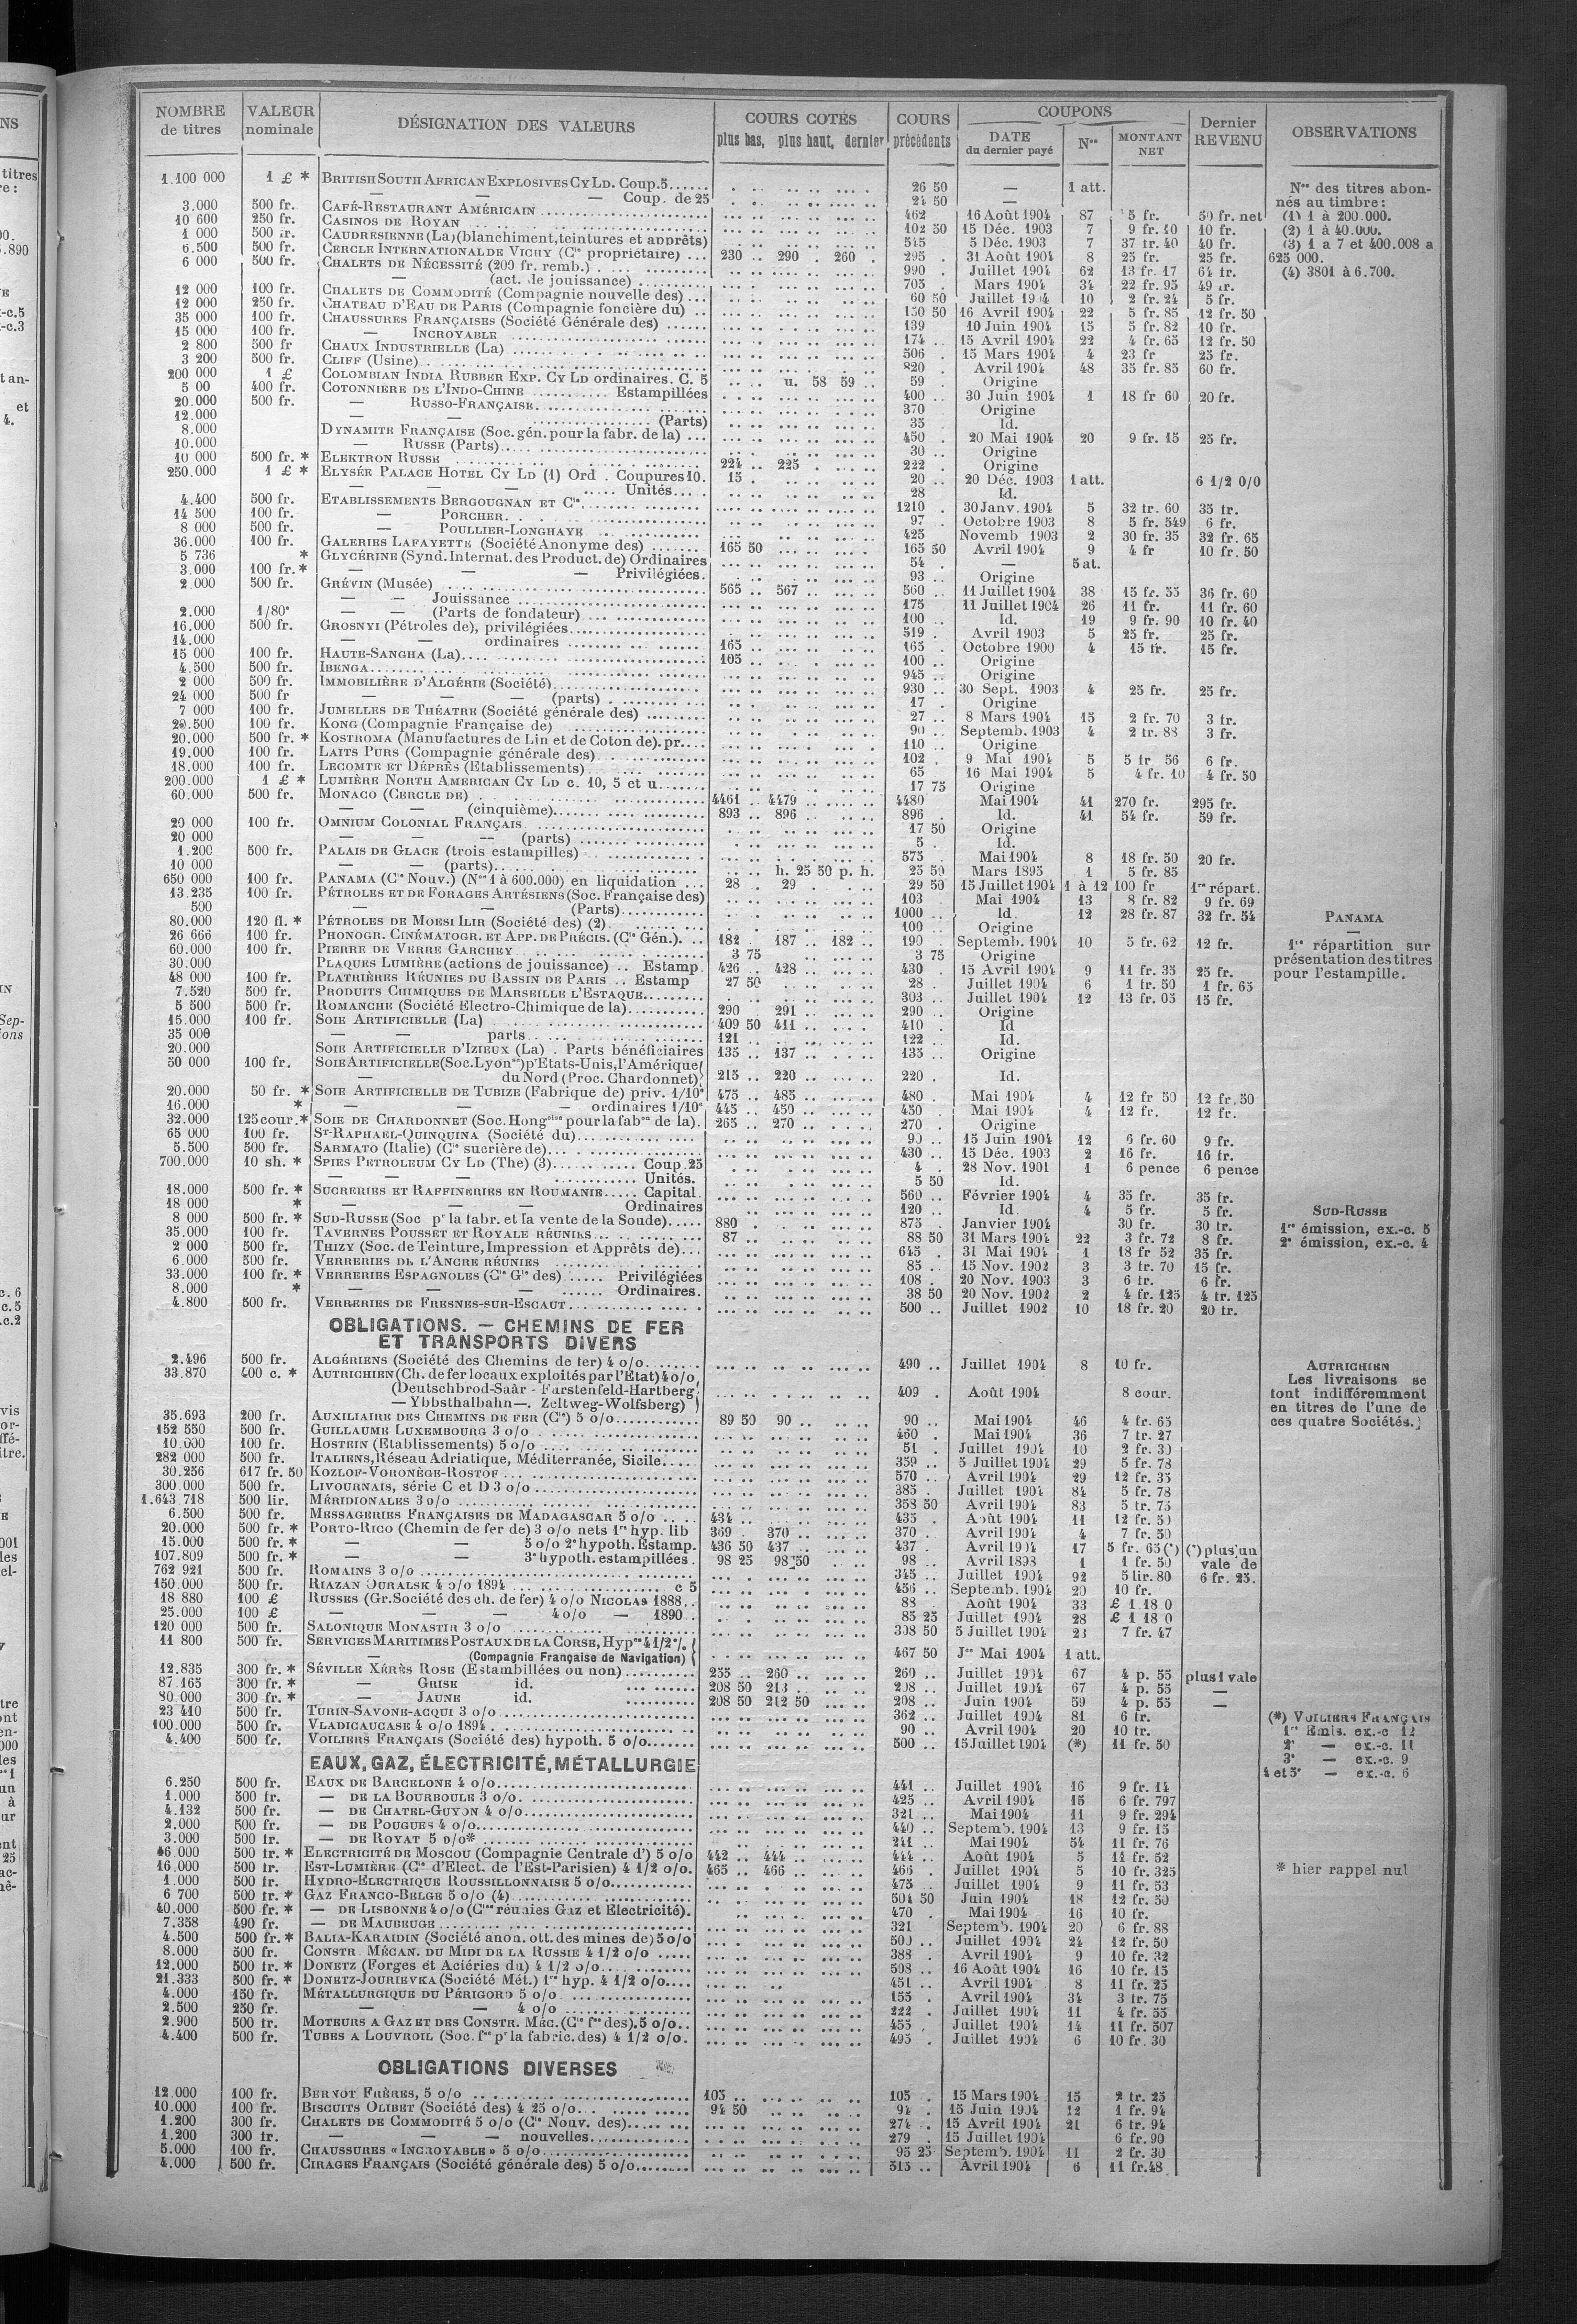 NOMBRE de titres VALEUR nominale DÉSIGNATION DES VALEURS COURS COTÉS plus bas, plus haut, dernier COURS précédents COUPONS DATE du dernier payé Nos MONTANT NET Dernier REVENU OBSERVATIONS
1.100 000 1 £ * BRITISH SOUTH AFRICAN EXPLOSIVES CY LD. Coup. 5 26 50 — 1 att.
— — Coup. de 25 24 50 —
3.000 500 fr. CAFÉ-RESTAURANT AMÉRICAIN 462 16 Août 1904 87 5 fr. 50 fr. net
10 600 250 fr. CASINOS DE ROYAN 102 50 15 Déc. 1903 7 9 fr. 10 10 fr.
1 000 500 fr. CAUDRESIENNE (La) (blanchiment, teintures et apprêts) 545 5 Déc. 1903 7 37 fr. 40 40 fr.
6.500 500 fr. CERCLE INTERNATIONAL DE VICHY (Cie propriétaire) 230 290 260 295 31 Août 1904 8 25 fr. 25 fr.
6 000 500 fr. CHALETS DE NÉCESSITÉ (200 fr. remb.) 990 Juillet 1904 62 13 fr. 17 64 fr.
— (act. de jouissance) 705 Mars 1904 34 22 fr. 95 49 fr.
12 000 100 fr. CHALETS DE COMMODITÉ (Compagnie nouvelle des) 60 50 Juillet 1904 10 2 fr. 24 5 fr.
12 000 250 fr. CHATEAU D'EAU DE PARIS (Compagnie foncière du) 150 50 16 Avril 1904 22 5 fr. 85 12 fr. 50
35 000 100 fr. CHAUSSURES FRANÇAISES (Société Générale des) 139 10 Juin 1904 15 5 fr. 82 10 fr.
15 000 100 fr. — INCROYABLE 174 15 Avril 1904 22 4 fr. 65 12 fr. 50
2 800 500 fr CHAUX INDUSTRIELLE (La) 506 15 Mars 1904 4 23 fr 25 fr.
3 200 500 fr. CLIFF (Usine) 820 Avril 1904 48 35 fr. 85 60 fr.
200 000 1 £ COLOMBIAN INDIA RUBBER EXP. CY LD ordinaires. C. 5 u. 58 59 59 Origine
5 00 400 fr. COTONNIÈRE DE L'INDO-CHINE Estampillées 400 30 Juin 1904 1 18 fr 60 20 fr.
20.000 500 fr. — RUSSO-FRANÇAISE 370 Origine
12.000 — (Parts) 35 Id.
8.000 DYNAMITE FRANÇAISE (Soc. gén. pour la fabr. de la) 450 20 Mai 1904 20 9 fr. 15 25 fr.
10.000 — RUSSE (Parts) 30 Origine
10 000 500 fr. * ELEKTRON RUSSE 224 225 222 Origine
250.000 1 £ * ELYSÉE PALACE HOTEL CY LD (1) Ord. Coupures 10. 15 20 20 Déc. 1903 1 att. 6 1/2 0/0
— — Unités 28 Id.
4.400 500 fr. ETABLISSEMENTS BERGOUGNAN ET Cie 1210 30 Janv. 1904 5 32 fr. 60 35 fr.
14 500 100 fr. — PORCHER 97 Octobre 1903 8 5 fr. 549 6 fr.
8 000 500 fr. — POULLIER-LONGHAYE 425 Novemb 1903 2 30 fr. 35 32 fr. 65
36.000 100 fr. GALERIES LAFAYETTE (Société Anonyme des) 165 50 165 50 Avril 1904 9 4 fr 10 fr. 50
5 736 * GLYCÉRINE (Synd. Internat. des Product. de) Ordinaires 54 — 5 at.
3.000 100 fr. * — — Privilégiées. 93 Origine
2.000 500 fr. GRÉVIN (Musée) 565 567 560 11 Juillet 1904 38 15 fr. 55 36 fr. 60
— — Jouissance 175 11 Juillet 1904 26 11 fr. 11 fr. 60
2.000 1/80e — — (Parts de fondateur) 100 Id. 19 9 fr. 90 10 fr. 40
16.000 500 fr. GROSNYI (Pétroles de), privilégiées 519 Avril 1903 5 25 fr. 25 fr.
14.000 — — ordinaires 165 165 Octobre 1900 4 15 fr. 15 fr.
15 000 100 fr. HAUTE-SANGHA (La) 105 100 Origine
4.500 500 fr. IBENGA 945 Origine
2 000 500 fr. IMMOBILIÈRE D'ALGÉRIE (Société) 930 30 Sept. 1903 4 25 fr. 25 fr.
24 000 500 fr — — — (parts) 17 Origine
7 000 100 fr. JUMELLES DE THÉATRE (Société générale des) 27 8 Mars 1904 15 2 fr. 70 3 fr.
29.500 100 fr. KONG (Compagnie Française de) 90 Septemb. 1903 4 2 fr. 88 3 fr.
20.000 500 fr. * KOSTROMA (Manufactures de Lin et de Coton de). pr. 110 Origine
19.000 100 fr. LAITS PURS (Compagnie générale des) 102 9 Mai 1904 5 5 fr 56 6 fr.
18.000 100 fr. LECOMTE ET DÉPRÈS (Etablissements) 65 16 Mai 1904 5 4 fr. 10 4 fr. 50
200.000 1 £ * LUMIÈRE NORTH AMERICAN CY LD c. 10, 5 et u. 17 75 Origine
60.000 500 fr. MONACO (CERCLE DE) 4461 4479 4480 Mai 1904 41 270 fr. 295 fr.
— — (cinquième) 893 896 896 Id. 41 54 fr. 59 fr.
20 000 100 fr. OMNIUM COLONIAL FRANÇAIS 17 50 Origine
20 000 — — (parts) 5 Id.
1.200 500 fr. PALAIS DE GLACE (trois estampilles) 575 Mai 1904 8 18 fr. 50 20 fr.
10 000 — — (parts) h. 25 50 p. h. 25 50 Mars 1895 1 5 fr. 85
650 000 100 fr. PANAMA (Cie Nouv.) (Nos 1 à 600.000) en liquidation 28 29 29 50 15 Juillet 1904 1 à 12 100 fr 1re répart.
13.235 100 fr. PÉTROLES ET DE FORAGES ARTÉSIENS (Soc. Française des) 103 Mai 1904 13 8 fr. 82 9 fr. 69
500 — — (Parts) 1000 Id. 12 28 fr. 87 32 fr. 54
80.000 120 fl. * PÉTROLES DE MOESI ILIR (Société des) (2) 100 Origine
26 666 100 fr. PHONOGR. CINÉMATOGR. ET APP. DE PRÉCIS. (Cie Gén.). 182 187 182 190 Septemb. 1904 10 5 fr. 62 12 fr.
60.000 100 fr. PIERRE DE VERRE GARCHEY 3 75 3 75 Origine
30.000 PLAQUES LUMIÈRE (actions de jouissance) Estamp. 426 428 430 15 Avril 1904 9 11 fr. 35 25 fr.
48 000 100 fr. PLATRIÈRES RÉUNIES DU BASSIN DE PARIS Estamp 27 50 28 Juillet 1904 6 1 fr. 50 1 fr. 65
7.520 500 fr. PRODUITS CHIMIQUES DE MARSEILLE L'ESTAQUE 303 Juillet 1904 12 13 fr. 05 15 fr.
5 500 500 fr. ROMANCHE (Société Electro-Chimique de la) 290 291 290 Origine
15.000 100 fr. SOIE ARTIFICIELLE (La) 409 50 411 410 Id
35 000 — parts 121 122 Id.
20.000 SOIE ARTIFICIELLE D'IZIEUX (La). Parts bénéficiaires 135 137 135 Origine
50 000 100 fr. SOIE ARTIFICIELLE (Soc. Lyonse) pr Etats-Unis, l'Amérique
— du Nord (Proc. Chardonnet) 215 220 220 Id.
20.000 50 fr. * SOIE ARTIFICIELLE DE TUBIZE (Fabrique de) priv. 1/10e 475 485 480 Mai 1904 4 12 fr 50 12 fr. 50
16.000 * — — — ordinaires 1/10e 445 450 450 Mai 1904 4 12 fr. 12 fr.
32.000 125 cour. * SOIE DE CHARDONNET (Soc. Hongoise pour la fabon de la). 265 270 270 Origine
65 000 100 fr. ST-RAPHAEL-QUINQUINA (Société du) 90 15 Juin 1904 12 6 fr. 60 9 fr.
5.500 500 fr. SARMATO (Italie) (Cie sucrière de) 430 15 Déc. 1903 2 16 fr. 16 fr.
700.000 10 sh. * SPIES PETROLEUM CY LD (The) (3) Coup. 25 4 28 Nov. 1901 1 6 pence 6 pence
— — — Unités. 5 50 Id.
18.000 500 fr. * SUCRERIES ET RAFFINERIES EN ROUMANIE Capital. 560 Février 1904 4 35 fr. 35 fr.
18 000 * — — — Ordinaires 120 Id. 4 5 fr. 5 fr.
8 000 500 fr. * SUD-RUSSE (Soc pr la fabr. et la vente de la Soude) 880 875 Janvier 1904 30 fr. 30 fr.
35.000 100 fr. TAVERNES POUSSET ET ROYALE RÉUNIES 87 88 50 31 Mars 1904 22 3 fr. 72 8 fr.
2 000 500 fr. THIZY (Soc. de Teinture, Impression et Apprêts de) 645 31 Mai 1904 1 18 fr 52 35 fr.
6.000 500 fr. VERRERIES DE L'ANCRE RÉUNIES 85 15 Nov. 1902 3 3 fr. 70 15 fr.
33.000 100 fr. * VERRERIES ESPAGNOLES (Cie Gle des) Privilégiées 108 20 Nov. 1903 3 6 fr. 6 fr.
8.000 * — — Ordinaires. 38 50 20 Nov. 1902 2 4 fr. 125 4 fr. 125
4.800 500 fr. VERRERIES DE FRESNES-SUR-ESCAUT 500 Juillet 1902 10 18 fr. 20 20 fr.
OBLIGATIONS. — CHEMINS DE FER
ET TRANSPORTS DIVERS
2.496 500 fr. ALGÉRIENS (Société des Chemins de fer) 4 o/o 490 Juillet 1904 8 10 fr.
33.870 400 c. * AUTRICHIEN (Ch. de fer locaux exploités par l'État) 4 o/o
(Deutschbrod-Saàr - Furstenfeld-Hartberg 409 Août 1904 8 cour.
— Ybbsthalbahn —. Zeltweg-Wolfsberg)
35.693 200 fr. AUXILIAIRE DES CHEMINS DE FER (Cie) 5 o/o 89 50 90 90 Mai 1904 46 4 fr. 65
152 550 500 fr. GUILLAUME LUXEMBOURG 3 o/o 460 Mai 1904 36 7 fr. 27
10.000 100 fr. HOSTEIN (Etablissements) 5 o/o 51 Juillet 1904 10 2 fr. 30
282 000 500 fr. ITALIENS, Réseau Adriatique, Méditerranée, Sicile 359 5 Juillet 1904 29 5 fr. 78
30.256 617 fr. 50 KOZLOF-VORONÈGE-ROSTOF 570 Avril 1904 29 12 fr. 35
300.000 500 fr. LIVOURNAIS, série C et D 3 o/o 385 Juillet 1904 84 5 fr. 78
1.643 718 500 lir. MÉRIDIONALES 3 o/o 358 50 Avril 1904 83 5 fr. 75
6.500 500 fr. MESSAGERIES FRANÇAISES DE MADAGASCAR 5 o/o 434 435 Août 1904 11 12 fr. 50
20.000 500 fr. * PORTO-RICO (Chemin de fer de) 3 o/o nets 1re hyp. lib 369 370 370 Avril 1904 4 7 fr. 50
15.000 500 fr. * — — 5 o/o 2e hypoth. Estamp. 436 50 437 437 Avril 1904 17 5 fr. 65 (*) (*) plus un
107.809 500 fr. * — — 3e hypoth. estampillées. 98 25 98 50 98 Avril 1898 1 1 fr. 50 vale de
762 921 500 fr. ROMAINS 3 o/o 345 Juillet 1904 92 5 lir. 80 6 fr. 25.
150.000 500 fr. RIAZAN OURALSK 4 o/o 1894 c 5 456 Septemb. 1904 20 10 fr.
18 880 100 £ RUSSES (Gr. Société des ch. de fer) 4 o/o NICOLAS 1888 88 Août 1904 33 £ 1 18 0
25.000 100 £ — — — 4 o/o — 1890 85 25 Juillet 1904 28 £ 1 18 0
120 000 500 fr. SALONIQUE MONASTIR 3 o/o 308 50 5 Juillet 1904 23 7 fr. 47
11 800 500 fr. SERVICES MARITIMES POSTAUX DE LA CORSE, Hypre 4 1/2 %
— (Compagnie Française de Navigation) 467 50 Jce Mai 1904 1 att.
12.835 300 fr. * SÉVILLE XÉRÈS ROSE (Estambillées ou non) 255 260 260 Juillet 1904 67 4 p. 55 plus 1 vale
87.165 300 fr. * — GRISE id. 208 50 213 208 Juillet 1904 67 4 p. 55 —
80.000 300 fr. * — JAUNE id. 208 50 212 50 208 Juin 1904 59 4 p. 55 —
23 410 500 fr. TURIN-SAVONE-ACQUI 3 o/o 362 Juillet 1904 81 6 fr.
100.000 500 fr. VLADICAUCASE 4 o/o 1894 90 Avril 1904 20 10 fr.
4.400 500 fr. VOILIERS FRANÇAIS (Société des) hypoth. 5 o/o 500 15 Juillet 1904 (*) 11 fr. 50
EAUX, GAZ, ÉLECTRICITÉ, MÉTALLURGIE
6.250 500 fr. EAUX DE BARCELONE 4 o/o 441 Juillet 1904 16 9 fr. 14
1.000 500 fr. — DE LA BOURBOULE 3 o/o 425 Avril 1904 15 6 fr. 797
4.132 500 fr. — DE CHATEL-GUYON 4 o/o 321 Mai 1904 11 9 fr. 294
2.000 500 fr. — DE POUGUES 4 o/o 440 Septemb. 1904 13 9 fr. 15
3.000 500 fr. — DE ROYAT 5 o/o* 241 Mai 1904 54 11 fr. 76
16.000 500 fr. * ELECTRICITÉ DE MOSCOU (Compagnie Centrale d') 5 o/o 442 444 444 Août 1904 5 11 fr. 52
16.000 500 fr. EST-LUMIÈRE (Cie d'Elect. de l'Est-Parisien) 4 1/2 o/o. 465 466 466 Juillet 1904 5 10 fr. 325
1.000 500 fr. HYDRO-ÉLECTRIQUE ROUSSILLONNAISE 5 o/o 475 Juillet 1904 9 11 fr. 53
6 700 500 fr. * GAZ FRANCO-BELGE 5 o/o (4) 504 50 Juin 1904 18 12 fr. 50
40.000 500 fr. * — DE LISBONNE 4 o/o (Cies réunies Gaz et Electricité). 470 Mai 1904 16 10 fr.
7.358 490 fr. — DE MAUBEUGE 321 Septemb. 1904 20 6 fr. 88
4.500 500 fr. * BALIA-KARAIDIN (Société anon. ott. des mines de) 5 o/o 500 Juillet 1904 24 12 fr. 50
8.000 500 fr. CONSTR. MÉCAN. DU MIDI DE LA RUSSIE 4 1/2 o/o 388 Avril 1904 9 10 fr. 32
12.000 500 fr. * DONETZ (Forges et Aciéries du) 4 1/2 o/o 508 16 Août 1904 16 10 fr. 15
21.333 500 fr. * DONETZ-JOURIEVKA (Société Mét.) 1re hyp. 4 1/2 o/o 451 Avril 1904 8 11 fr. 25
4.000 150 fr. MÉTALLURGIQUE DU PÉRIGORD 5 o/o 155 Avril 1904 34 3 fr. 75
2.500 250 fr. — — 4 o/o 222 Juillet 1904 11 4 fr. 55
2.900 500 fr. MOTEURS A GAZ ET DES CONSTR. MÉC. (Cie fse des). 5 o/o 455 Juillet 1904 14 11 fr. 507
4.400 500 fr. TUBES A LOUVROIL (Soc. fse pr la fabric. des) 4 1/2 o/o. 495 Juillet 1904 6 10 fr. 30
OBLIGATIONS DIVERSES
12.000 100 fr. BERNOT FRÈRES, 5 o/o 105 105 15 Mars 1904 15 2 fr. 25
10.000 100 fr. BISCUITS OLIBET (Société des) 4 25 o/o 94 50 94 15 Juin 1904 12 1 fr. 94
1.200 300 fr. CHALETS DE COMMODITÉ 5 o/o (Cie Nouv. des) 274 15 Avril 1904 21 6 fr. 94
1.200 300 fr. — — — nouvelles 279 15 Juillet 1904 6 fr. 90
5.000 100 fr. CHAUSSURES « INCROYABLE » 5 o/o 95 25 Septemb. 1904 11 2 fr. 30
4.000 500 fr. CIRAGES FRANÇAIS (Société générale des) 5 o/o 515 Avril 1904 6 11 fr. 48
Nos des titres abon-
nés au timbre :
(1) 1 à 200.000.
(2) 1 à 40.000.
(3) 1 a 7 et 400.008 a
625 000.
(4) 3801 à 6.700.
PANAMA
—
1re répartition sur
présentation des titres
pour l'estampille.
SUD-RUSSE
1re émission, ex.-c. 5
2e émission, ex.-c. 4
AUTRICHIEN
Les livraisons se
font indifféremment
en titres de l'une de
ces quatre Sociétés.
(*) VOILIERS FRANÇAIS
1re Emis. ex.-c 12
2e — ex.-c. 11
3e — ex.-c. 9
4 et 5e — ex.-c. 6
* hier rappel nul